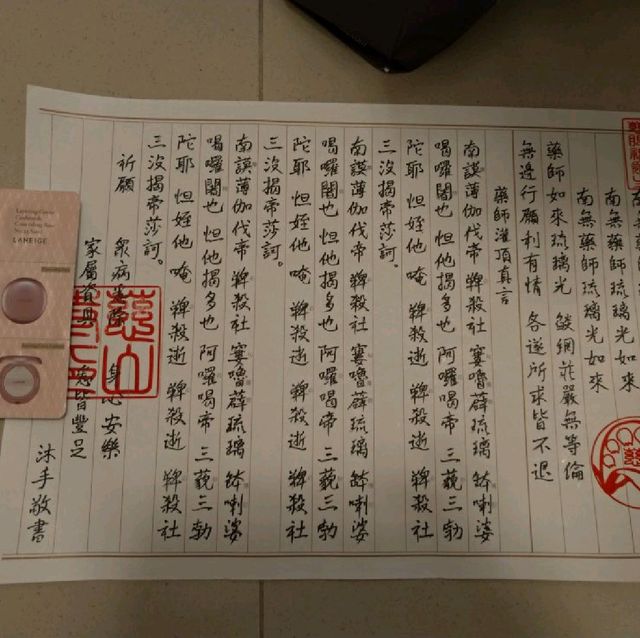 南無藥師琉璃光如來
南無藥師琉璃光如來
藥師如來琉璃光 燄網莊嚴無等倫
無邊行願利有情 各遂所求皆不退
藥師灌頂真言
南謨薄伽伐帝 鞞殺社 窶嚕薜琉璃 缽喇婆
喝囉闍也 怛他揭多也 阿囉喝帝 三藐三勃
陀耶 怛姪他 唵 鞞殺逝 鞞殺逝 鞞殺社
三沒揭帝莎訶。
南謨薄伽伐帝 鞞殺社 窶嚕薜琉璃 缽喇婆
喝囉闍也 怛他揭多也 阿囉喝帝 三藐三勃
陀耶 怛姪他 唵 鞞殺逝 鞞殺逝 鞞殺社
三沒揭帝莎訶。
南謨薄伽伐帝 鞞殺社 窶嚕薜琉璃 缽喇婆
喝囉闍也 怛他揭多也 阿囉喝帝 三藐三勃
陀耶 怛姪他 唵 鞞殺逝 鞞殺逝 鞞殺社
三沒揭帝莎訶。
祈願 眾病悉除 身心安樂
家屬資具 悉皆豐足
沐手敬書
慈山
Layering Cover
Cushion &
Concealing Base
LANEIGE